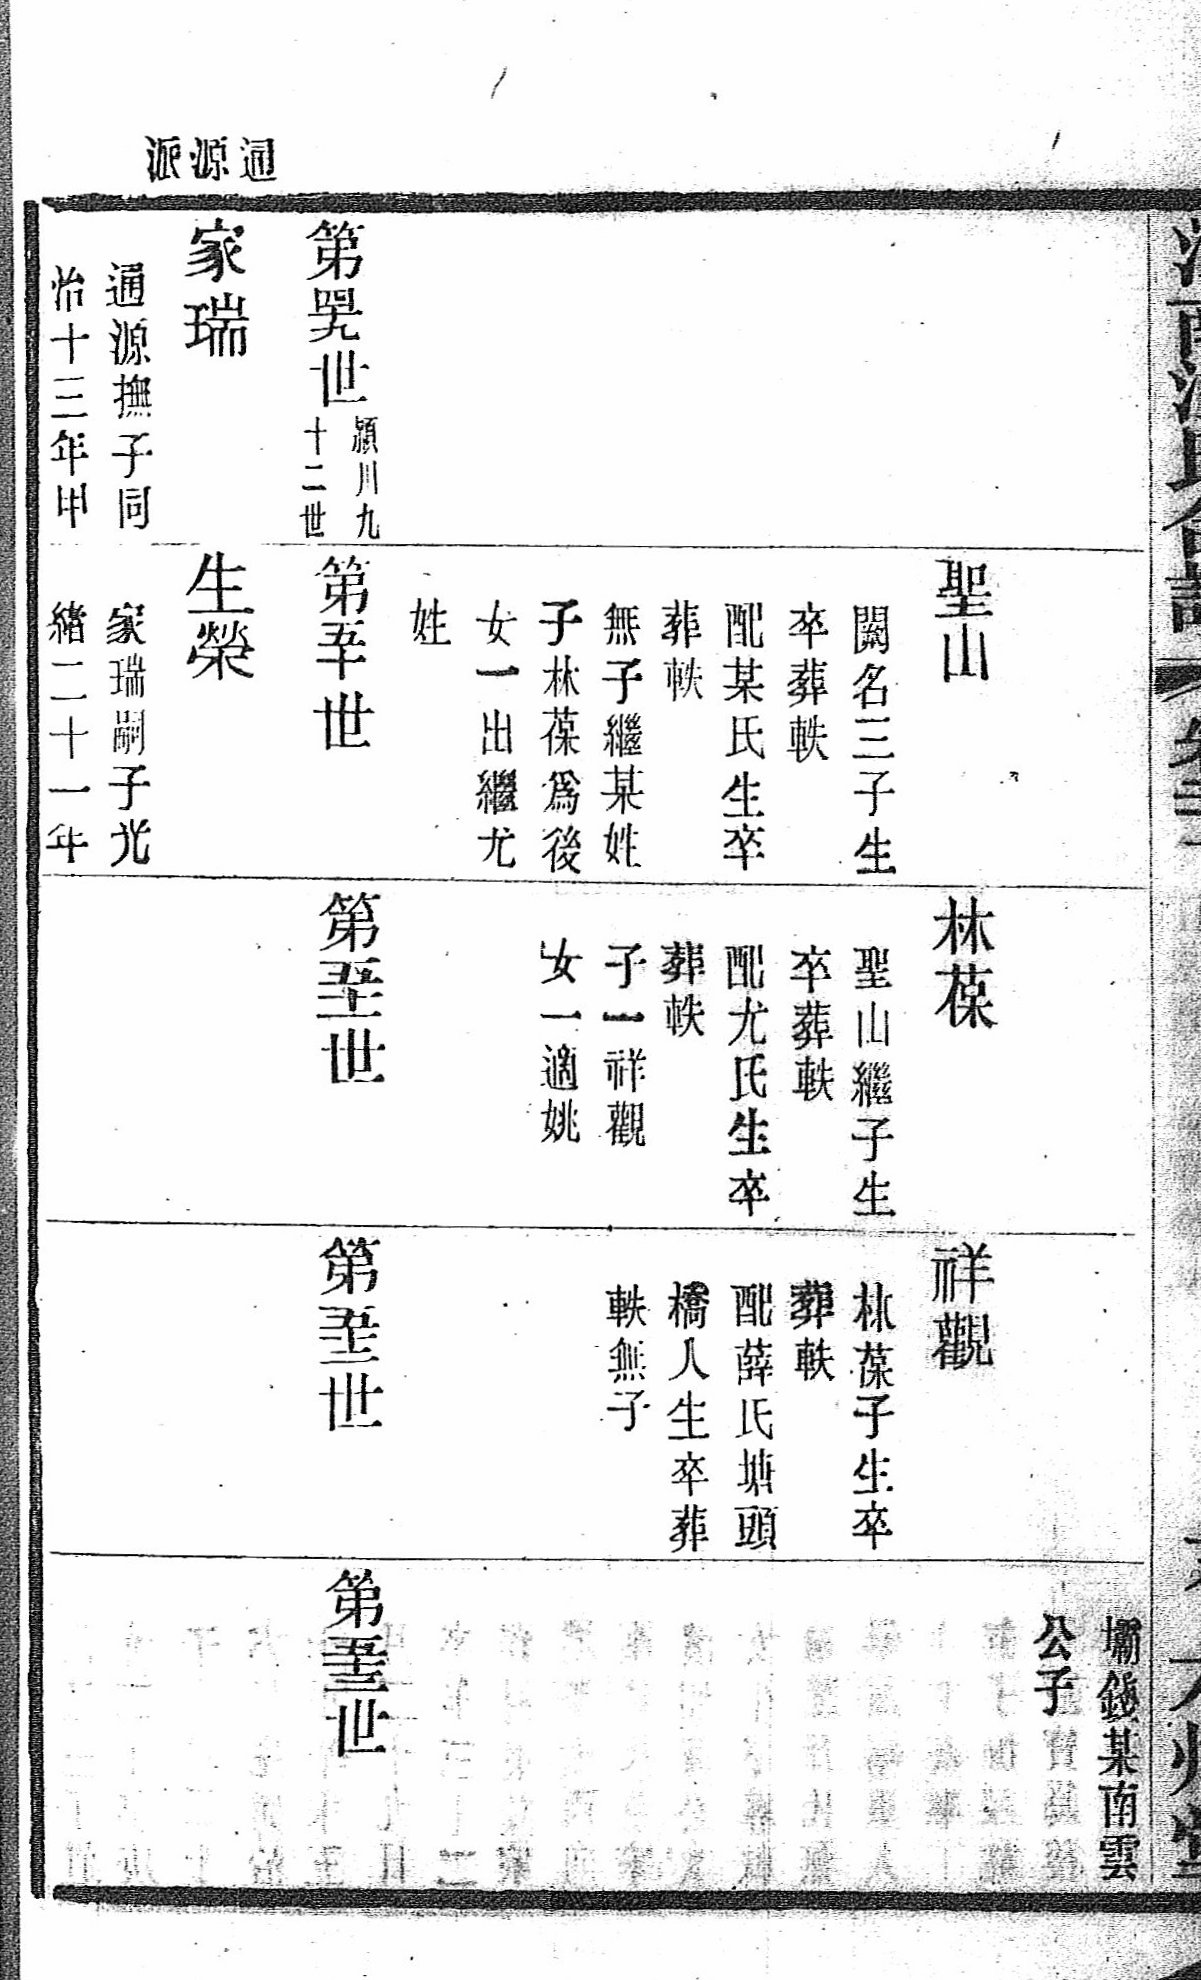 通源派
壩錢某南雲
公子
聖山
闕名三子生
卒葬軼
配某氏生卒
葬軼
無子繼某姓
子林葆爲後
女一出繼尤
姓
林葆
聖山繼子生
卒葬軼
配尤氏生卒
葬軼
子一祥觀
女一適姚
祥觀
林葆子生卒
葬軼
配薛氏塘頭
橋人生卒葬
軼無子
第四九世
潁川九
十二世
家瑞
通源撫子同
治十三年甲
第五十世
生榮
家瑞嗣子光
緒二十一年
第五十一世
第五十二世
第五十三世